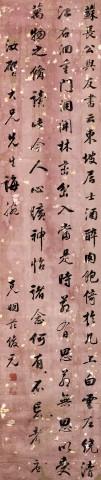 蘇長公與友書云東坡居士酒醉肉飽倚於几上白雲左繞清
江右洄重門洞開林巒坌入當是時若有思若無思以受
萬物之備讀此令人心曠神怡諸念何有
大兄先生誨